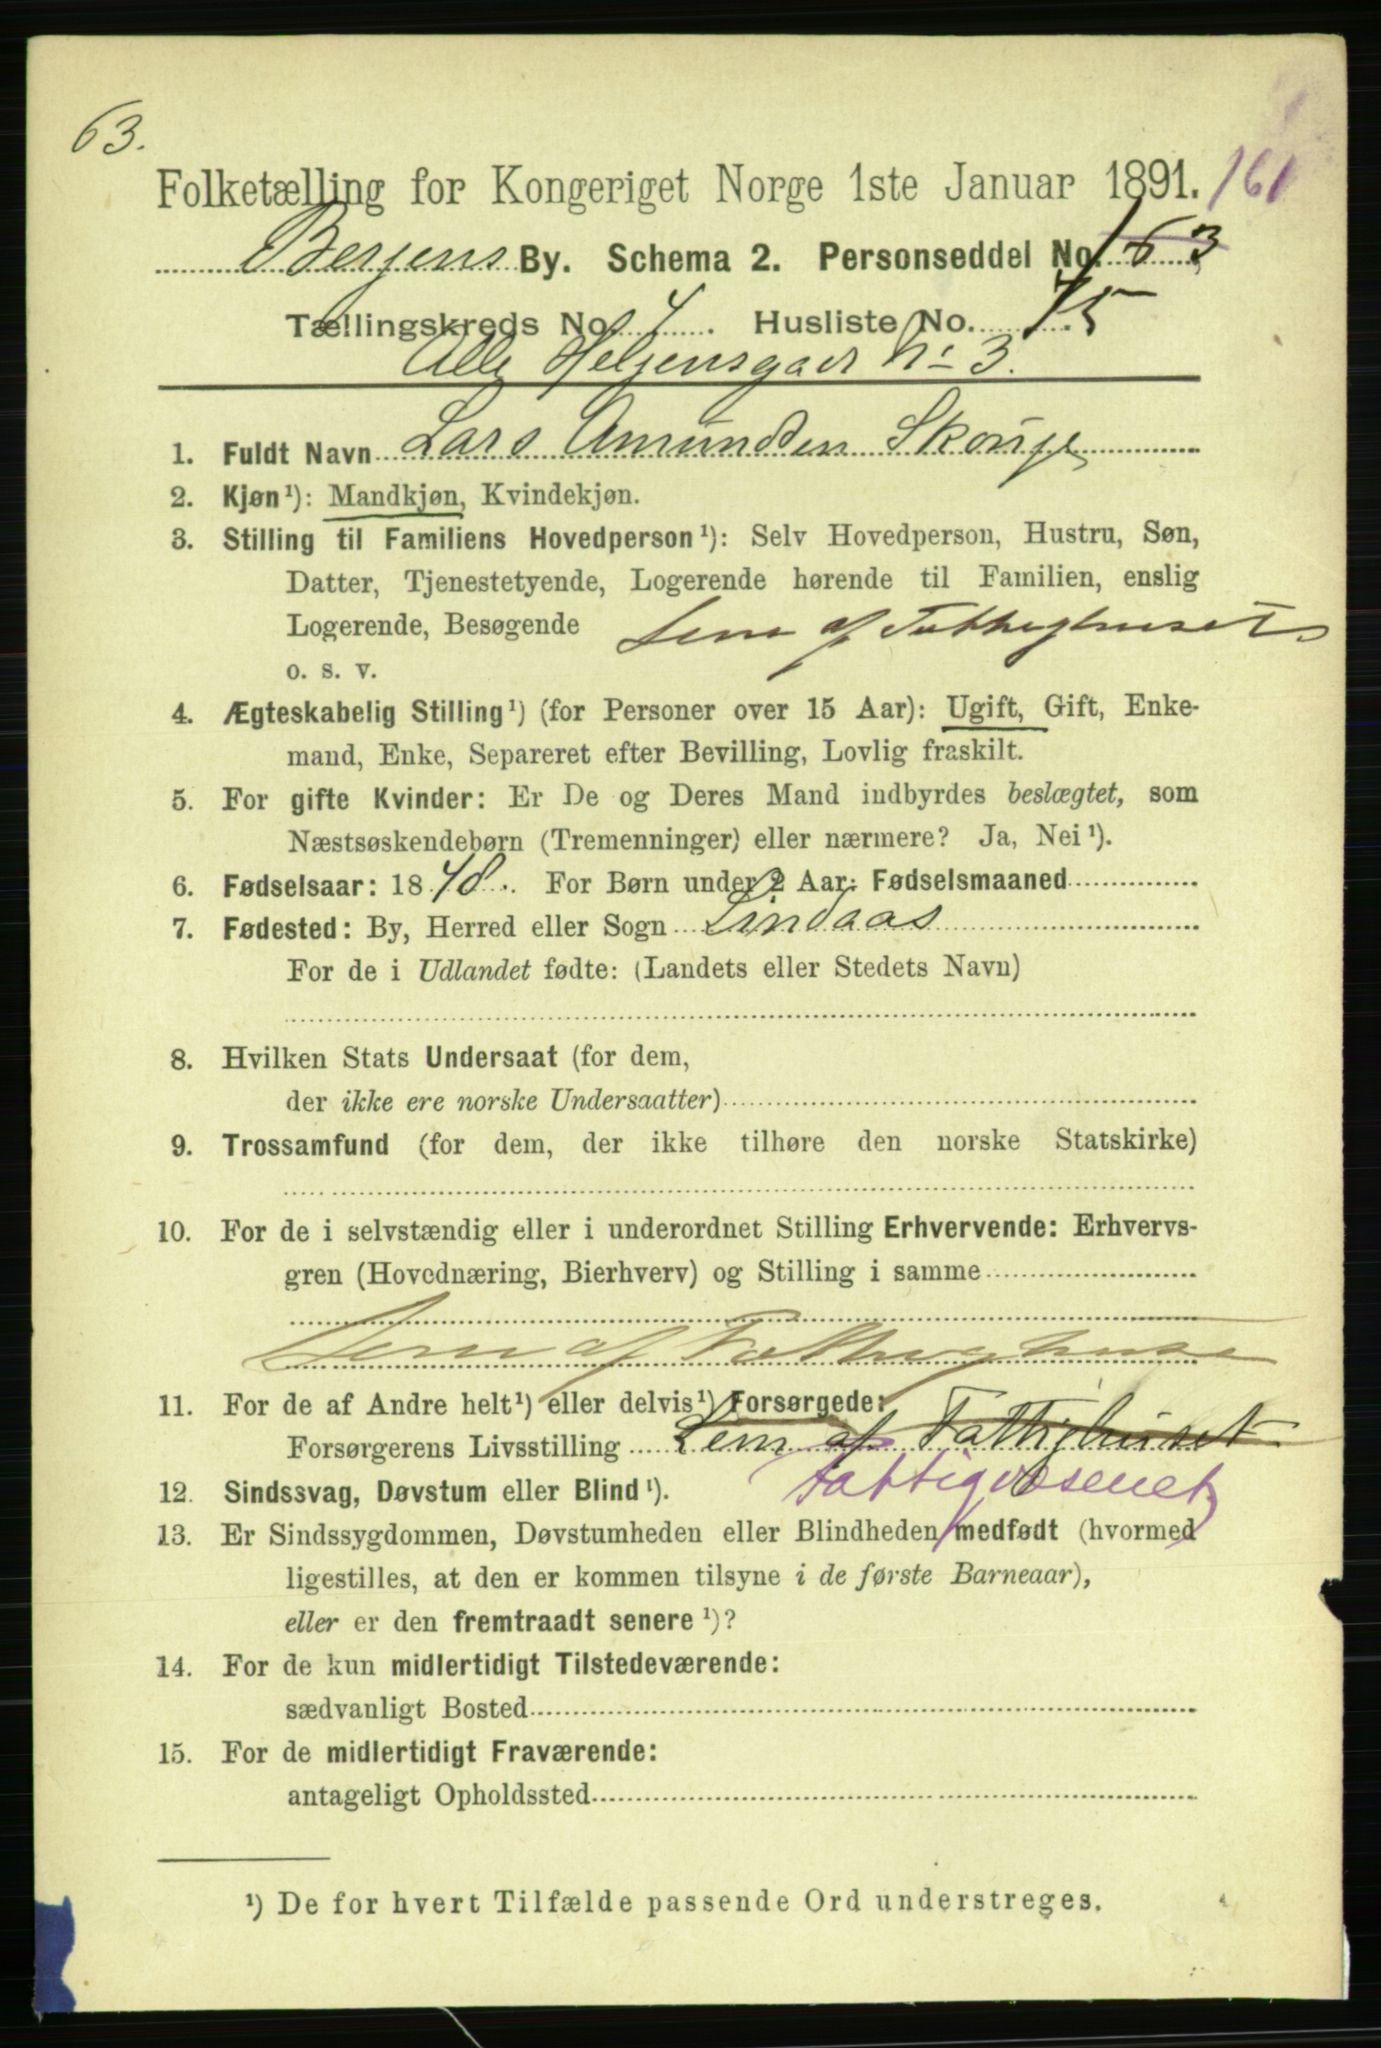 63.
Folketælling for Kongeriget Norge 1ste Januar 1891. 161
Bergens By. Schema 2. Personseddel No. 163
Tællingskreds No. 4. Husliste No. 15
Alle Helgensgade No 3.
1. Fuldt Navn Lars Amundsen Skouge
2. Kjøn¹): Mandkjøn, Kvindekjøn.
3. Stilling til Familiens Hovedperson¹): Selv Hovedperson, Hustru, Søn,
Datter, Tjenestetyende, Logerende hørende til Familien, enslig
Logerende, Besøgende Lem af Fattighuset
o. s. v.
4. Ægteskabelig Stilling¹) (for Personer over 15 Aar): Ugift, Gift, Enke-
mand, Enke, Separeret efter Bevilling, Lovlig fraskilt.
5. For gifte Kvinder: Er De og Deres Mand indbyrdes beslægtet, som
Næstsøskendebørn (Tremenninger) eller nærmere? Ja, Nei¹).
6. Fødselsaar: 1848. For Børn under 2 Aar: Fødselsmaaned
7. Fødested: By, Herred eller Sogn Lindaas
For de i Udlandet fødte: (Landets eller Stedets Navn)
8. Hvilken Stats Undersaat (for dem,
der ikke ere norske Undersaatter)
9. Trossamfund (for dem, der ikke tilhøre den norske Statskirke)
10. For de i selvstændig eller i underordnet Stilling Erhvervende: Erhvervs-
gren (Hovednæring, Bierhverv) og Stilling i samme
Lem af Fattighuset
11. For de af Andre helt¹) eller delvis¹) Forsørgede:
Forsørgerens Livsstilling Lem af Fattighuset
Fattigvæsenet
12. Sindssvag, Døvstum eller Blind¹).
13. Er Sindssygdommen, Døvstumheden eller Blindheden medfødt (hvormed
ligestilles, at den er kommen tilsyne i de første Barneaar),
eller er den fremtraadt senere¹)?
14. For de kun midlertidigt Tilstedeværende:
sædvanligt Bosted
15. For de midlertidigt Fraværende:
antageligt Opholdssted
¹) De for hvert Tilfælde passende Ord understreges.